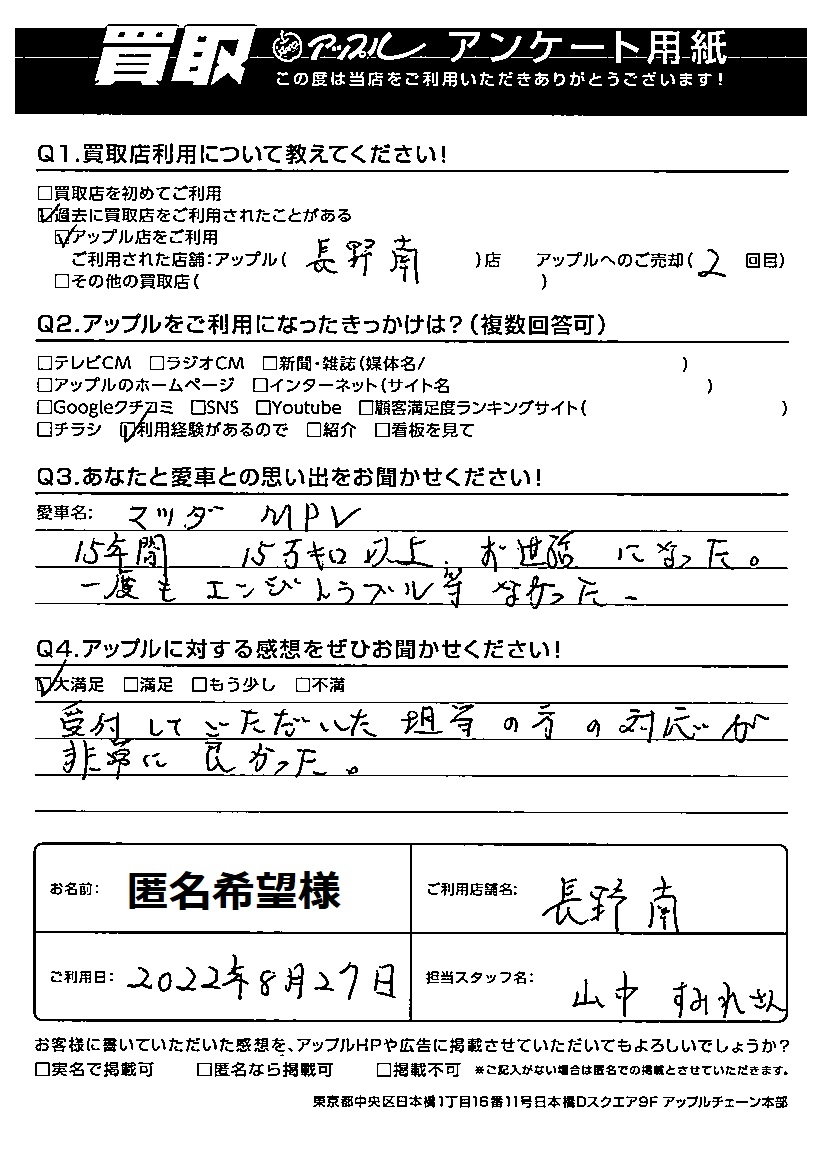 買取 アップル アンケート用紙
この度は当店をご利用いただきありがとうございます!
Q1.買取店利用について教えてください!
□買取店を初めてご利用
☑過去に買取店をご利用されたことがある
☑アップル店をご利用
ご利用された店舗:アップル( 長野南 )店 アップルへのご売却( 2 回目)
□その他の買取店( )
Q2.アップルをご利用になったきっかけは?(複数回答可)
□テレビCM □ラジオCM □新聞・雑誌(媒体名/ )
□アップルのホームページ □インターネット(サイト名 )
□Googleクチコミ □SNS □Youtube □顧客満足度ランキングサイト( )
□チラシ ☑利用経験があるので □紹介 □看板を見て
Q3.あなたと愛車との思い出をお聞かせください!
愛車名: マツダ MPV
15年間 15万キロ以上 お世話になった。
一度もエンジントラブル等なかった。
Q4.アップルに対する感想をぜひお聞かせください!
☑大満足 □満足 □もう少し □不満
受付していただいた担当の方の対応が
非常に良かった。
お名前: 匿名希望様 ご利用店舗名: 長野南
ご利用日: 2022年8月27日 担当スタッフ名: 山中すみれさん
お客様に書いていただいた感想を、アップルHPや広告に掲載させていただいてもよろしいでしょうか?
□実名で掲載可 □匿名なら掲載可 □掲載不可 ※ご記入がない場合は匿名での掲載とさせていただきます。
東京都中央区日本橋1丁目16番11号日本橋Dスクエア9F アップルチェーン本部